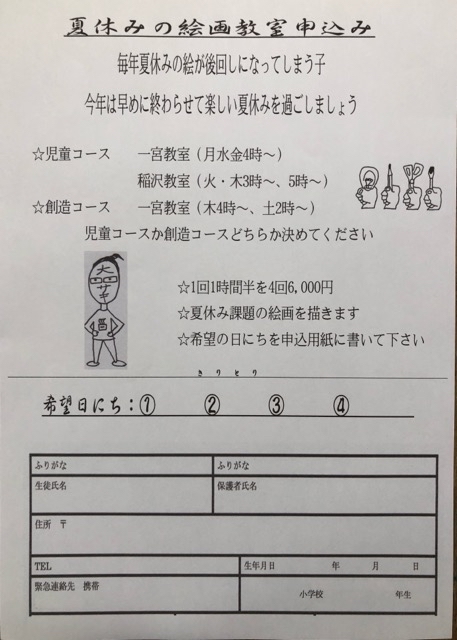 夏休みの絵画教室申込み
毎年夏休みの絵が後回しになってしまう子
今年は早めに終わらせて楽しい夏休みを過ごしましょう
☆児童コース 一宮教室（月水金4時～）
稲沢教室（火・木3時～、5時～）
☆創造コース 一宮教室（木4時～、土2時～）
児童コースか創造コースどちらか決めてください
☆1回1時間半を4回6,000円
☆夏休み課題の絵画を描きます
☆希望の日にちを申込用紙に書いて下さい
きりとり
希望日にち：① ② ③ ④
ふりがな ふりがな
生徒氏名 保護者氏名
住所 〒
TEL 生年月日 年 月 日
緊急連絡先 携帯 小学校 年生